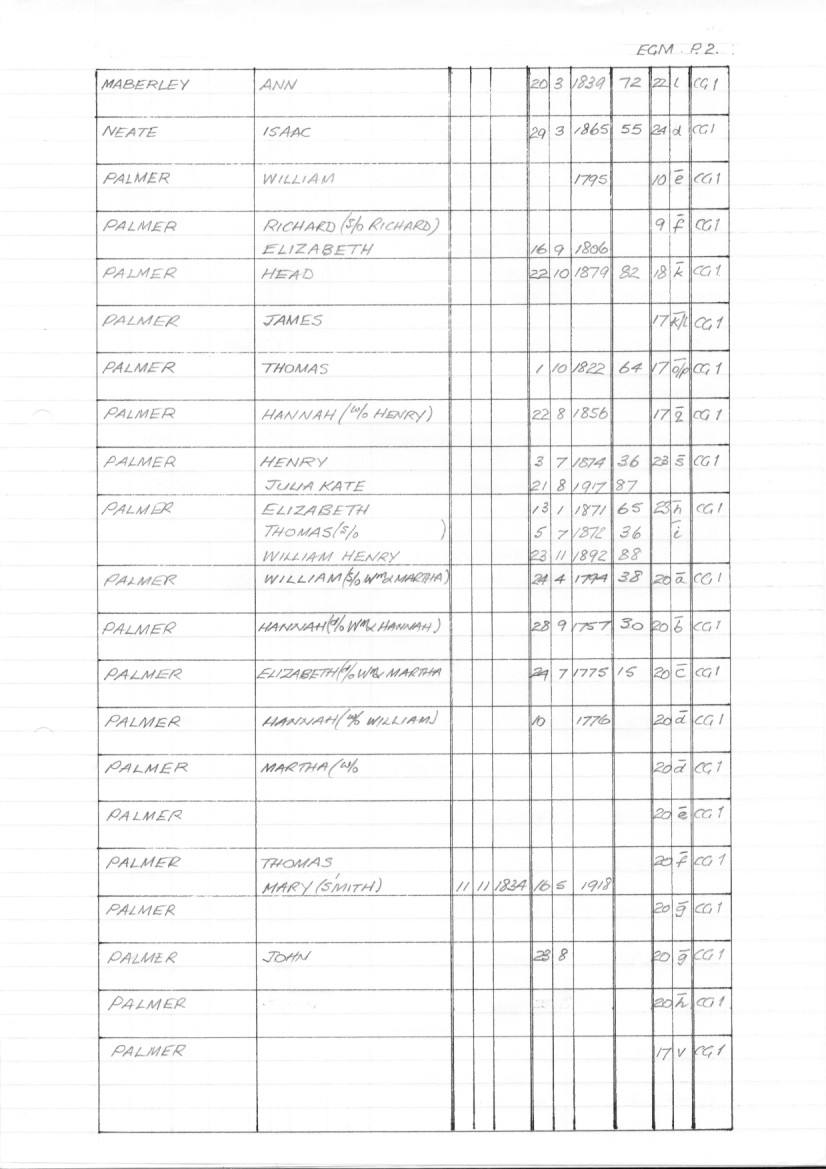 EGM P.2.
MABERLEY ANN 20 3 1839 72 22 l CG1
NEATE ISAAC 29 3 1865 55 24 d CG1
PALMER WILLIAM 1795 10 ē CG1
PALMER RICHARD (S/o RICHARD) 9 f̄ CG1
ELIZABETH 16 9 1806
PALMER HEAD 22 10 1879 82 18 k̄ CG1
PALMER JAMES 17 k̄/l CG1
PALMER THOMAS 1 10 1822 64 17 ō/p CG1
PALMER HANNAH (W/o HENRY) 22 8 1856 17 CG1
PALMER HENRY 3 7 1874 36 23 s̄ CG1
JULIA KATE 21 8 1917 87
PALMER ELIZABETH 13 1 1871 65 23 h̄ CG1
THOMAS (S/o ) 5 7 1872 36 ī
WILLIAM HENRY 23 11 1892 88
PALMER WILLIAM (S/o Wm & MARTHA) 24 4 1794 38 20 ā CG1
PALMER HANNAH (d/o Wm & HANNAH) 28 9 1757 30 20 b̄ CG1
PALMER ELIZABETH (d/o Wm & MARTHA 24 7 1775 15 20 c̄ CG1
PALMER HANNAH (W/o WILLIAM) 10 1776 20 d̄ CG1
PALMER MARTHA (W/o 20 d̄ CG1
PALMER 20 ē CG1
PALMER THOMAS 20 f̄ CG1
MARY (SMITH) 11 11 1834 16 5 1918
PALMER 20 ḡ CG1
PALMER JOHN 23 8 20 ḡ CG1
PALMER 20 h̄ CG1
PALMER 17 v CG1